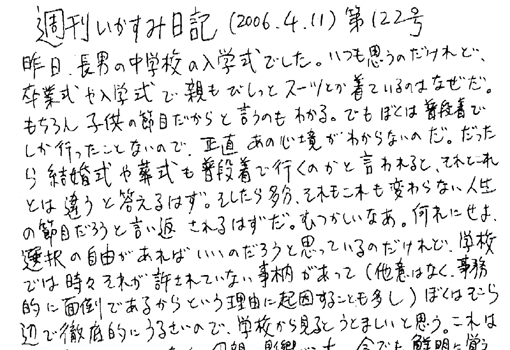 週刊いかすみ日記 (2006.4.11) 第122号
昨日、長男の中学校の入学式でした。いつも思うのだけれど、
卒業式や入学式で親もびしっとスーツとか着ているのはなぜだ。
もちろん子供の節目だからと言うのもわかる。でもぼくは普段着で
しか行ったことないので、正直あの心境がわからないのだ。だった
ら結婚式や葬式も普段着で行くのかと言われると、それとこれ
とは違うと答えるはず。そしたら多分、それもこれも変わらない人生
の節目だろうと言い返されるはずだ。むつかしいなあ。何れにせよ、
選択の自由があればいいのだろうと思っているのだけれど、学校
では時々それが許されていない事柄があって(他意はなく、事務
的に面倒であるからという理由に起因することも多し)ぼくはそこら
辺で徹底的にうるさいので、学校から見るとうとましいと思う。これは